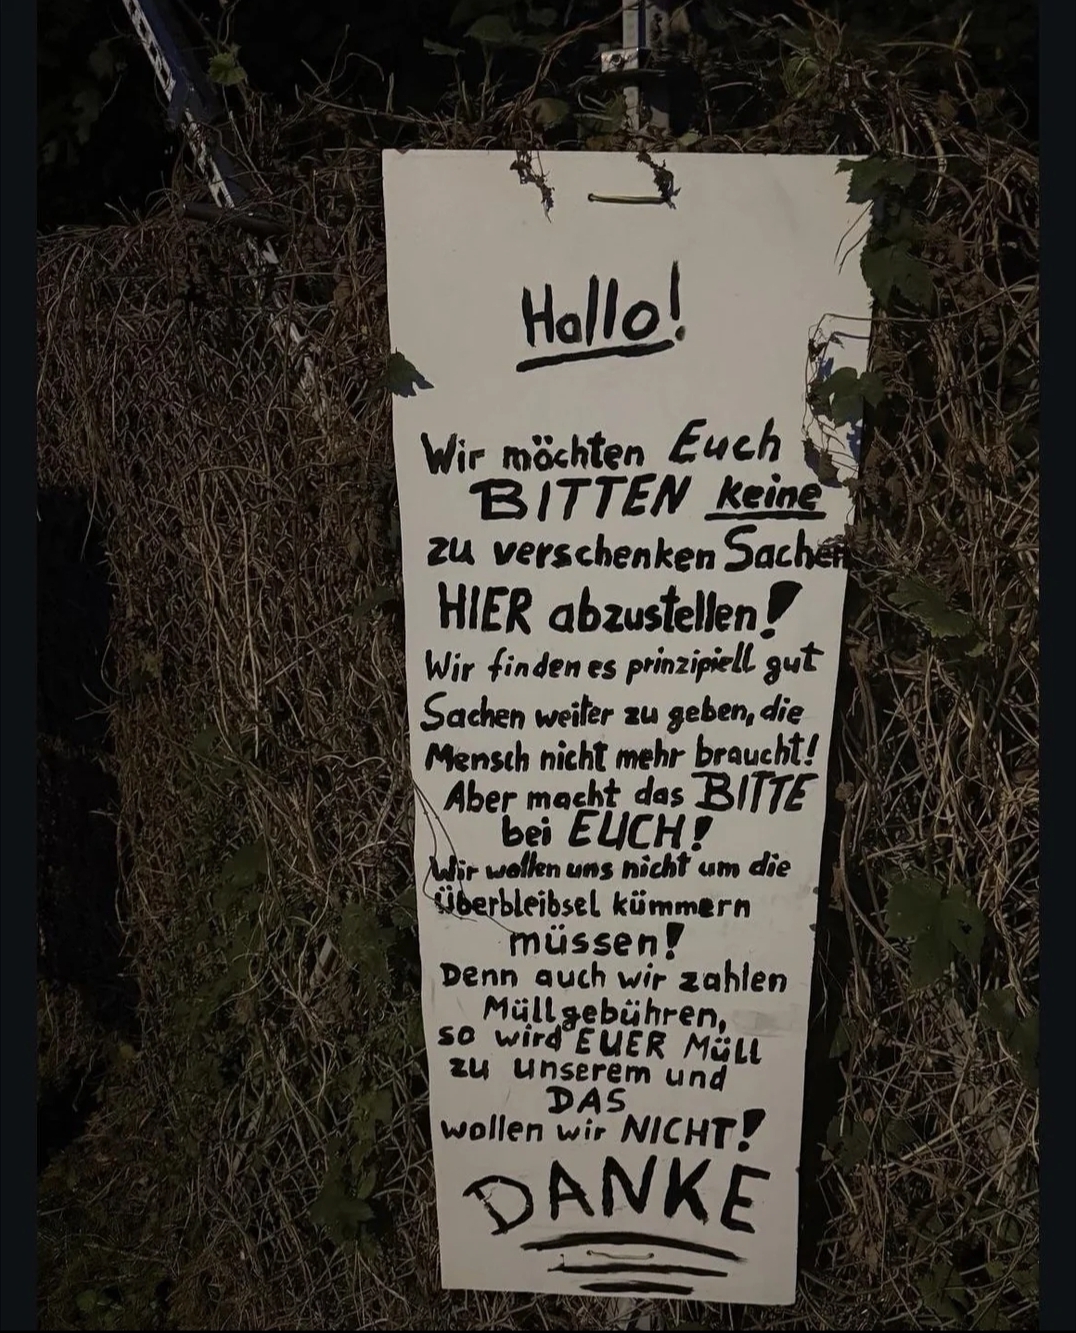 Hallo!
Wir möchten Euch
BITTEN keine
zu verschenken Sachen
HIER abzustellen!
Wir finden es prinzipiell gut
Sachen weiter zu geben, die
Mensch nicht mehr braucht!
Aber macht das BITTE
bei EUCH!
Wir wollen uns nicht um die
Überbleibsel kümmern
müssen!
Denn auch wir zahlen
Müllgebühren,
so wird EUER Müll
zu unserem und
DAS
wollen wir NICHT!
DANKE